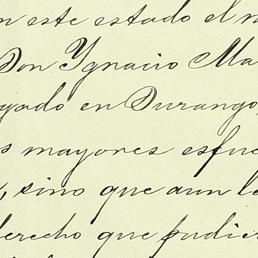 n este estado el n
Don Ygnacio Ma
gado en Durango,
s mayores esfue
, sino que aun le
derecho que pudie